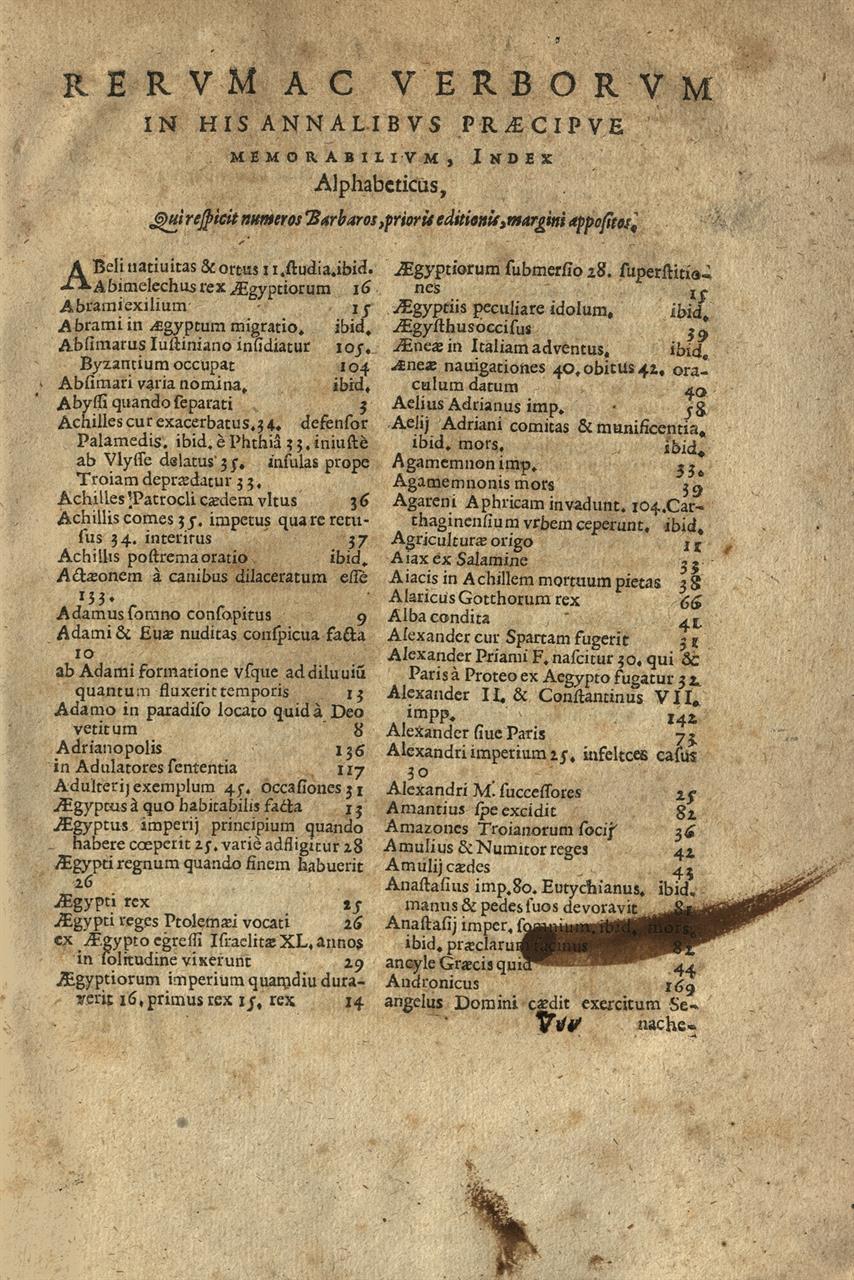 RERVM AC VERBORVM
IN HIS ANNALIBVS PRÆCIPVE
MEMORABILIVM, INDEX
Alphabeticus,
Qui reſpicit numeros Barbaros, prioris editionis, margini appoſitos.
ABeli natiuitas & ortus 11. ſtudia, ibid.
Abimelechus rex Ægyptiorum 16
Abrami exilium 15
Abrami in ægyptum migratio. ibid.
Abſimarus Iuſtiniano inſidiatur 105.
Byzantium occupat 104
Abſimari varia nomina. ibid.
Abyſſi quando ſeparati 3
Achilles cur exacerbatus. 34. defenſor
Palamedis. ibid. è Phthiâ 33. iniuſtè
ab Vlyſſe delatus 35. inſulas prope
Troiam deprædatur 33.
Achilles Patrocli cædem vltus 36
Achillis comes 35. impetus qua re retu-
ſus 34. interitus 37
Achillis poſtrema oratio ibid.
Actæonem à canibus dilaceratum eſſe
133.
Adamus ſomno conſopitus 9
Adami & Euæ nuditas conſpicua facta
10
ab Adami formatione vſque ad diluuiũ
quantum fluxerit temporis 13
Adamo in paradiſo locato quid à Deo
vetitum 8
Adrianopolis 136
in Adulatores ſententia 117
Adulterij exemplum 45. occaſiones 31
Ægyptus à quo habitabilis facta 13
Ægyptus imperij principium quando
habere cœperit 25. variè adfligitur 28
Ægypti regnum quando finem habuerit
26
Ægypti rex 25
Ægypti reges Ptolemæi vocati 26
ex Ægypto egreſſi Iſraelitæ XL. annos
in ſolitudine vixerunt 29
Ægyptiorum imperium quamdiu dura-
verit 16. primus rex 15. rex 14
Ægyptiorum ſubmerſio 28. ſuperſtitio-
nes 15
Ægyptiis peculiare idolum. ibid.
Ægyſthus occiſus 39
Æneæ in Italiam adventus. ibid.
æneæ nauigationes 40. obitus 42. ora-
culum datum 40
Aelius Adrianus imp. 58
Aelij Adriani comitas & munificentia.
ibid. mors. ibid.
Agamemnon imp. 33.
Agamemnonis mors 39
Agareni Aphricam invadunt. 104. Car-
thaginenſium vrbem ceperunt. ibid.
Agriculturæ origo 11
Aiax ex Salamine 33
Aiacis in Achillem mortuum pietas 38
Alaricus Gotthorum rex 66
Alba condita 41
Alexander cur Spartam fugerit 31
Alexander Priami F. naſcitur 30. qui &
Paris à Proteo ex Aegypto fugatur 32
Alexander II. & Conſtantinus VII.
impp. 142
Alexander ſiue Paris 73
Alexandri imperium 25. infelices caſus
30
Alexandri M. ſucceſſores 25
Amantius ſpe excidit 82
Amazones Troianorum ſocij 36
Amulius & Numitor reges 42
Amulij cædes 43
Anaſtaſius imp. 80. Eutychianus. ibid.
manus & pedes ſuos devoravit 81
Anaſtaſij imper. ſomnium. ibid. mors.
ibid. præclarum facinus 82
ancyle Græcis quid 44
Andronicus 169
angelus Domini cædit exercitum Se-
Vvv nache-